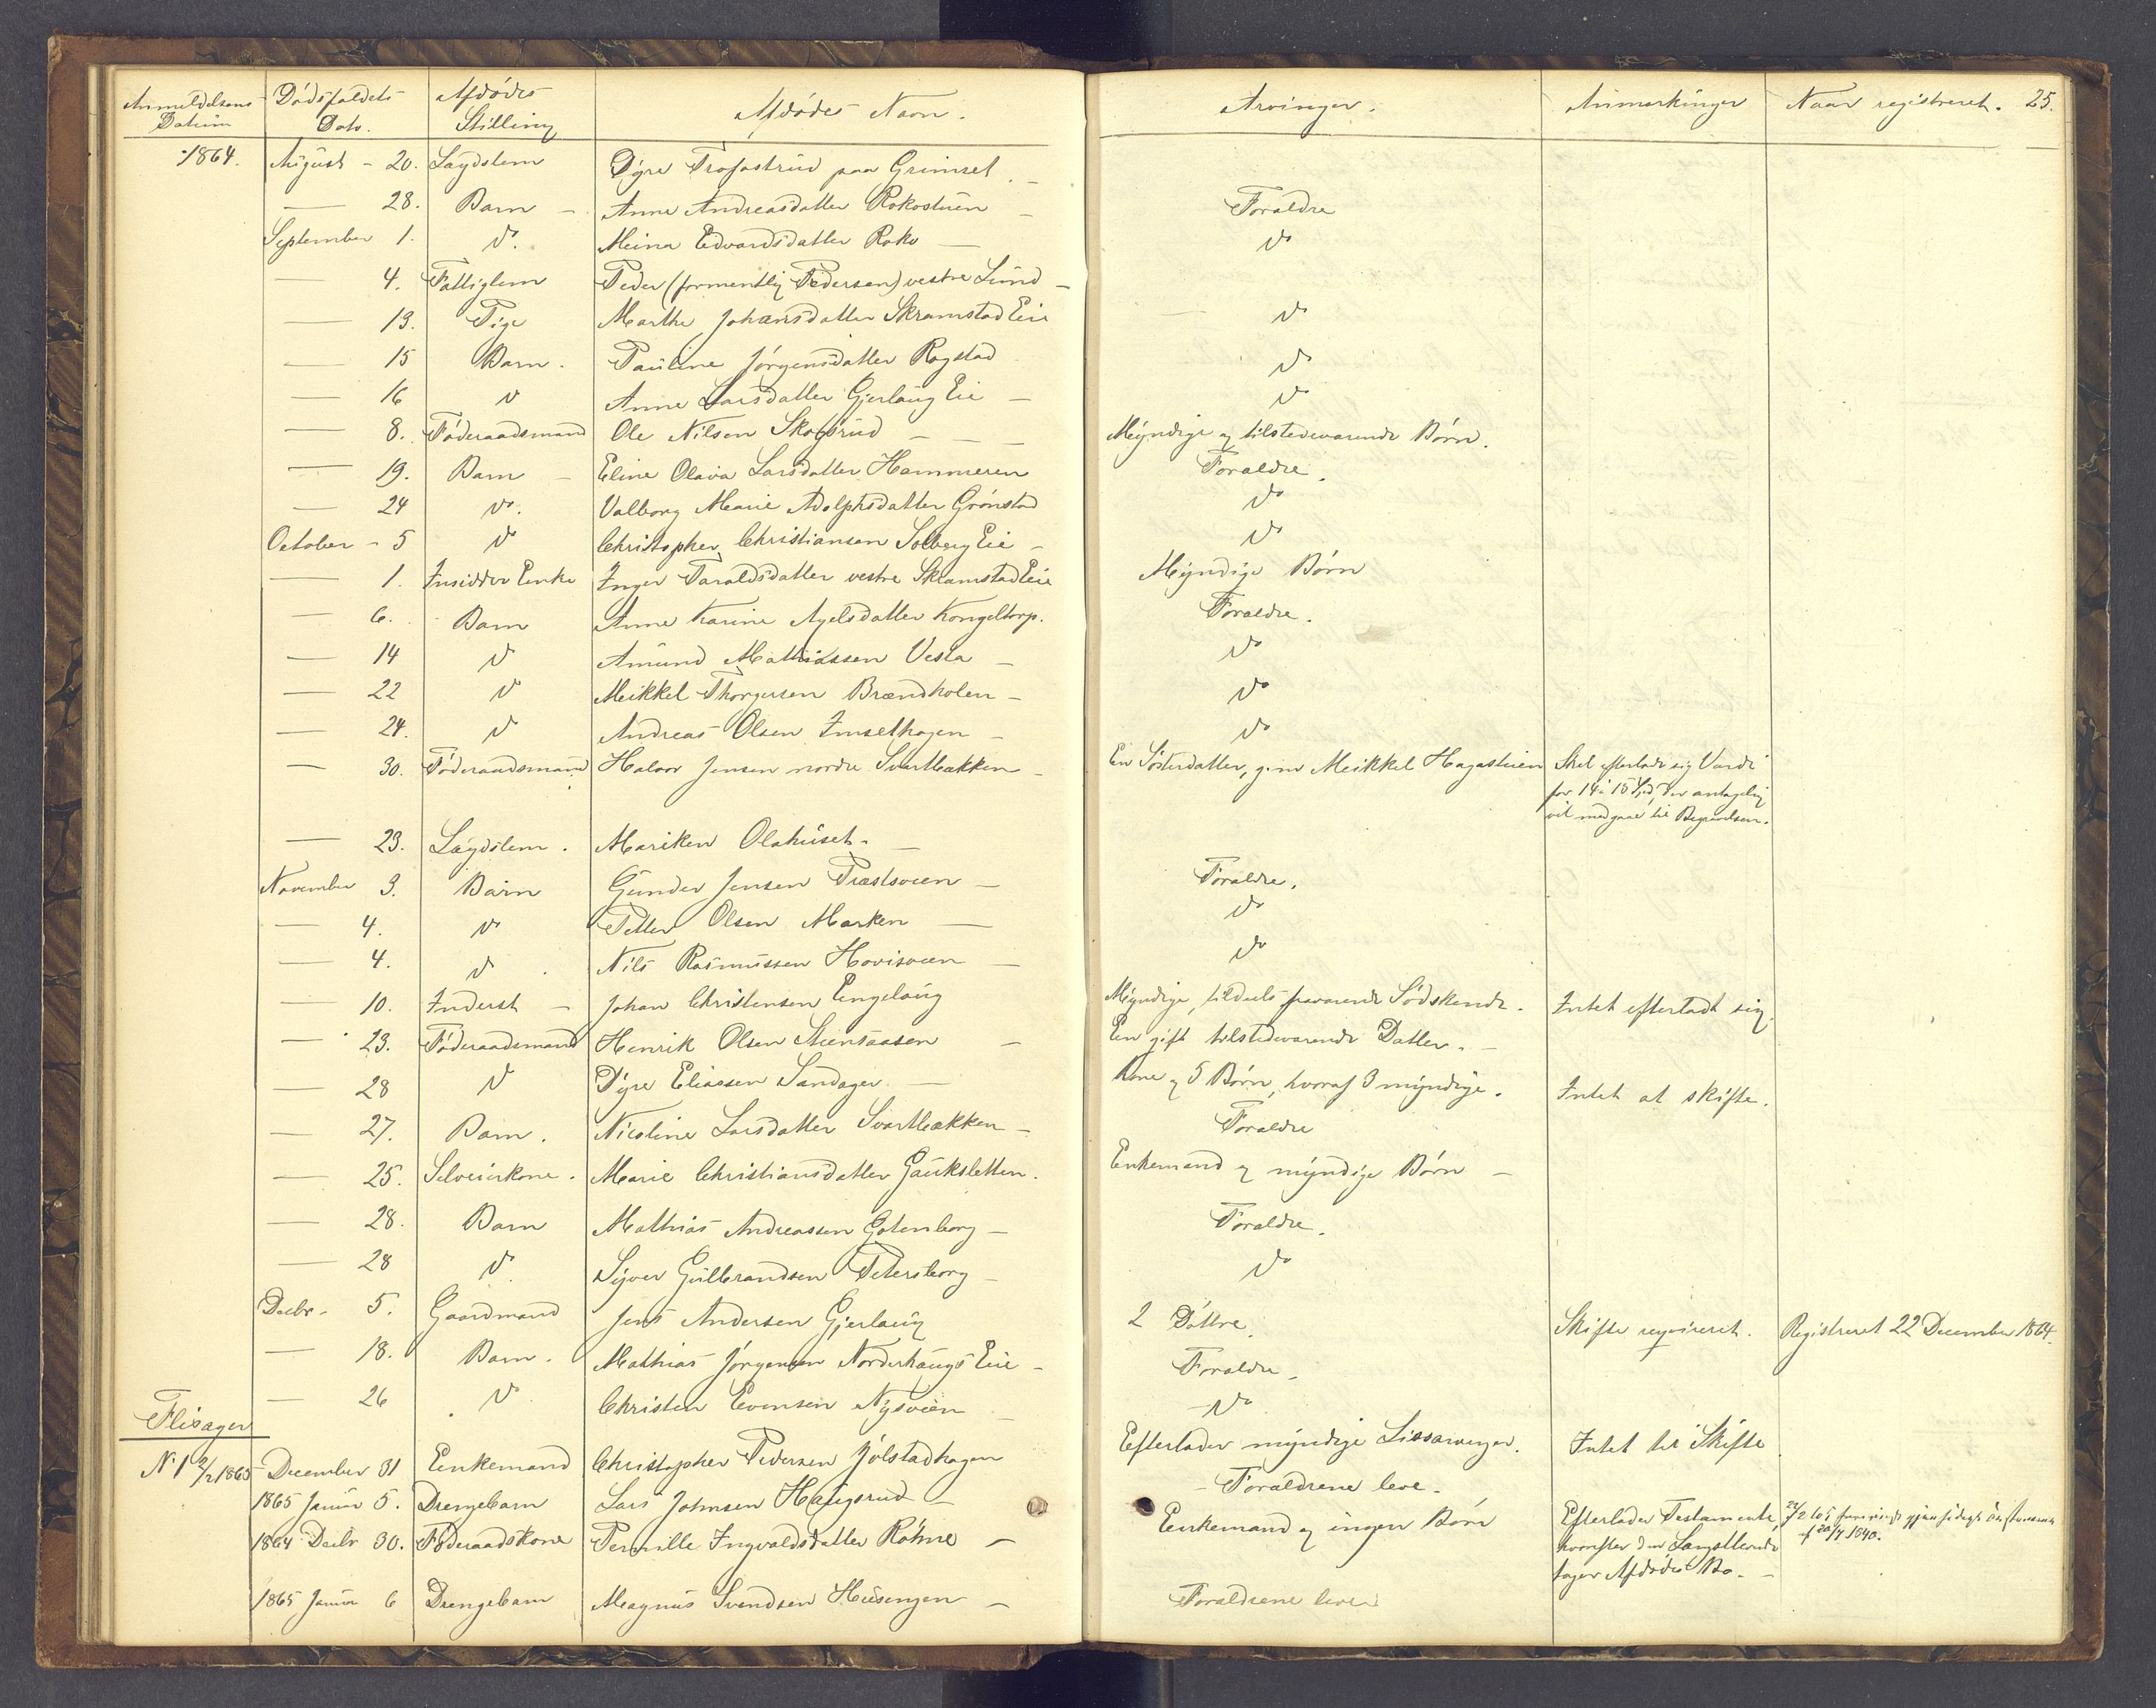 Anmeldelsens Datum | Dødsfaldets Dato. | Afdødes Stilling | Afdødes Navn. | Arvinger. | Anmærkninger | Naar registreret. 25.
1864. August - 20. Lægdslem Dyre Trofastrud paa Grimset.
— 28. Barn - Anne Andreasdatter Rokostuen - Forældre
September 1. do. Meina Edvardsdatter Roko — do
— 4. Fattiglem Peder (formentlig Pedersen) vestre Lund -
— 13. Pige Marthe Johansdatter Skramstad Eie do
— 15 Barn. Pauline Jørgensdatter Rogstad do
— 16 do Anne Larsdatter Gjerlaug Eie - do
— 8. Føderaadsmand Ole Nilsen Skogsrud - - - Myndige og tilstedeværende Børn.
— 19. Barn - Eline Olava Larsdatter Hammeren Forældre.
— 24 do. Valborg Marie Adolphsdatter Grønstad do
October - 5 do Christopher Christiansen Solberg Eie - do
— 1. Insidder Enke Inger Taraldsdatter vestre Skramstad Eie Myndige Børn
— 6. Barn Anne Karine Axelsdatter Kongeltorp. Forældre.
— 14 do Amund Mathiassen Vesta - do
— 22 do Meikkel Thorgersen Brændholen - do
— 24. do Andreas Olsen Imsethagen - do
— 30. Føderaadsmand Halvor Jensen nordre Svartbækken - En Søsterdatter, g. m. Meikkel Hagastuen Skal efterlade sig Værdi
for 14 à 15 Spd, der antagelig
vil medgaae til Begravelsen.
— 23. Lægdslem. Mariken Olahuset. -
November 3. Barn Gunder Jensen Præstsveen - Forældre.
— 4. do Petter Olsen Marken — do
— 4. do. Nils Rasmussen Hovisveen - do
— 10. Inderst - Johan Christensen Engelaug Myndige, tildeels fraværende Sødskende. Intet efterladt sig.
— 23. Føderaadsmand Henrik Olsen Stensaasen - En gift tilstedeværende Datter. -
— 28 do Dyre Eliassen Sandager — Kone og 5 Børn, hvoraf 3 myndige. Intet at skifte.
— 27. Barn. Nicoline Larsdatter Svartbækken - Forældre
— 25. Selveierkone. Marie Christiansdatter Gaukstetten. Enkemand og myndige Børn -
— 28. Barn Mathias Andreassen Gotenborg - Forældre.
— 28 do. Syver Gulbrandsen Petersborg - do
Decbr - 5. Gaardmand Jens Andersen Gjerlaug 2 Døttre. Skifte reqvireret. Registreret 22 December 1864.
— 18. Barn. Mathias Jørgensen Norderhaugs Eie - Forældre.
— 26 do Christen Evensen Nysveen - do
Flisager
N 1 2/2 1865 - December 31 Enkemand Christopher Pedersen Jølstadhagen Efterlader myndige Livsarvinger. Intet til Skifte
1865 Januar 5. Drengebarn Lars Johnsen Haugsrud - Forældrene leve.
1864 Decbr 30. Føderaadskone Pernille Ingvaldsdatter Røhne - Enkemand og ingen Børn Efterlader Testamente,
hvorefter den Længstlevende
tager Afdødes Bo. -
1865 Januar 6 Drengebarn Magnus Svendsen Husengen - Forældrene leve